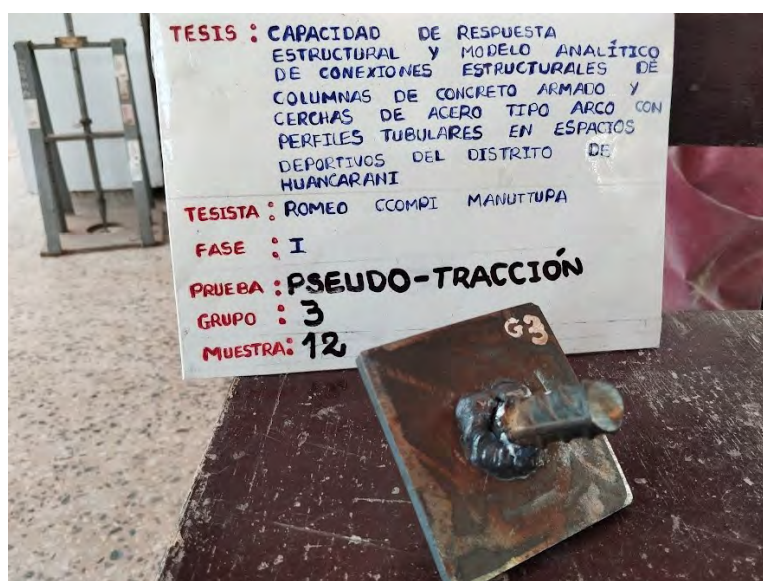 TESIS : CAPACIDAD DE RESPUESTA
ESTRUCTURAL Y MODELO ANALÍTICO
DE CONEXIONES ESTRUCTURALES DE
COLUMNAS DE CONCRETO ARMADO Y
CERCHAS DE ACERO TIPO ARCO CON
PERFILES TUBULARES EN ESPACIOS
DEPORTIVOS DEL DISTRITO DE
HUANCARANI
TESISTA : ROMEO CCOMPI MANUTTUPA
FASE : I
PRUEBA : PSEUDO-TRACCIÓN
GRUPO : 3
MUESTRA: 12
G3